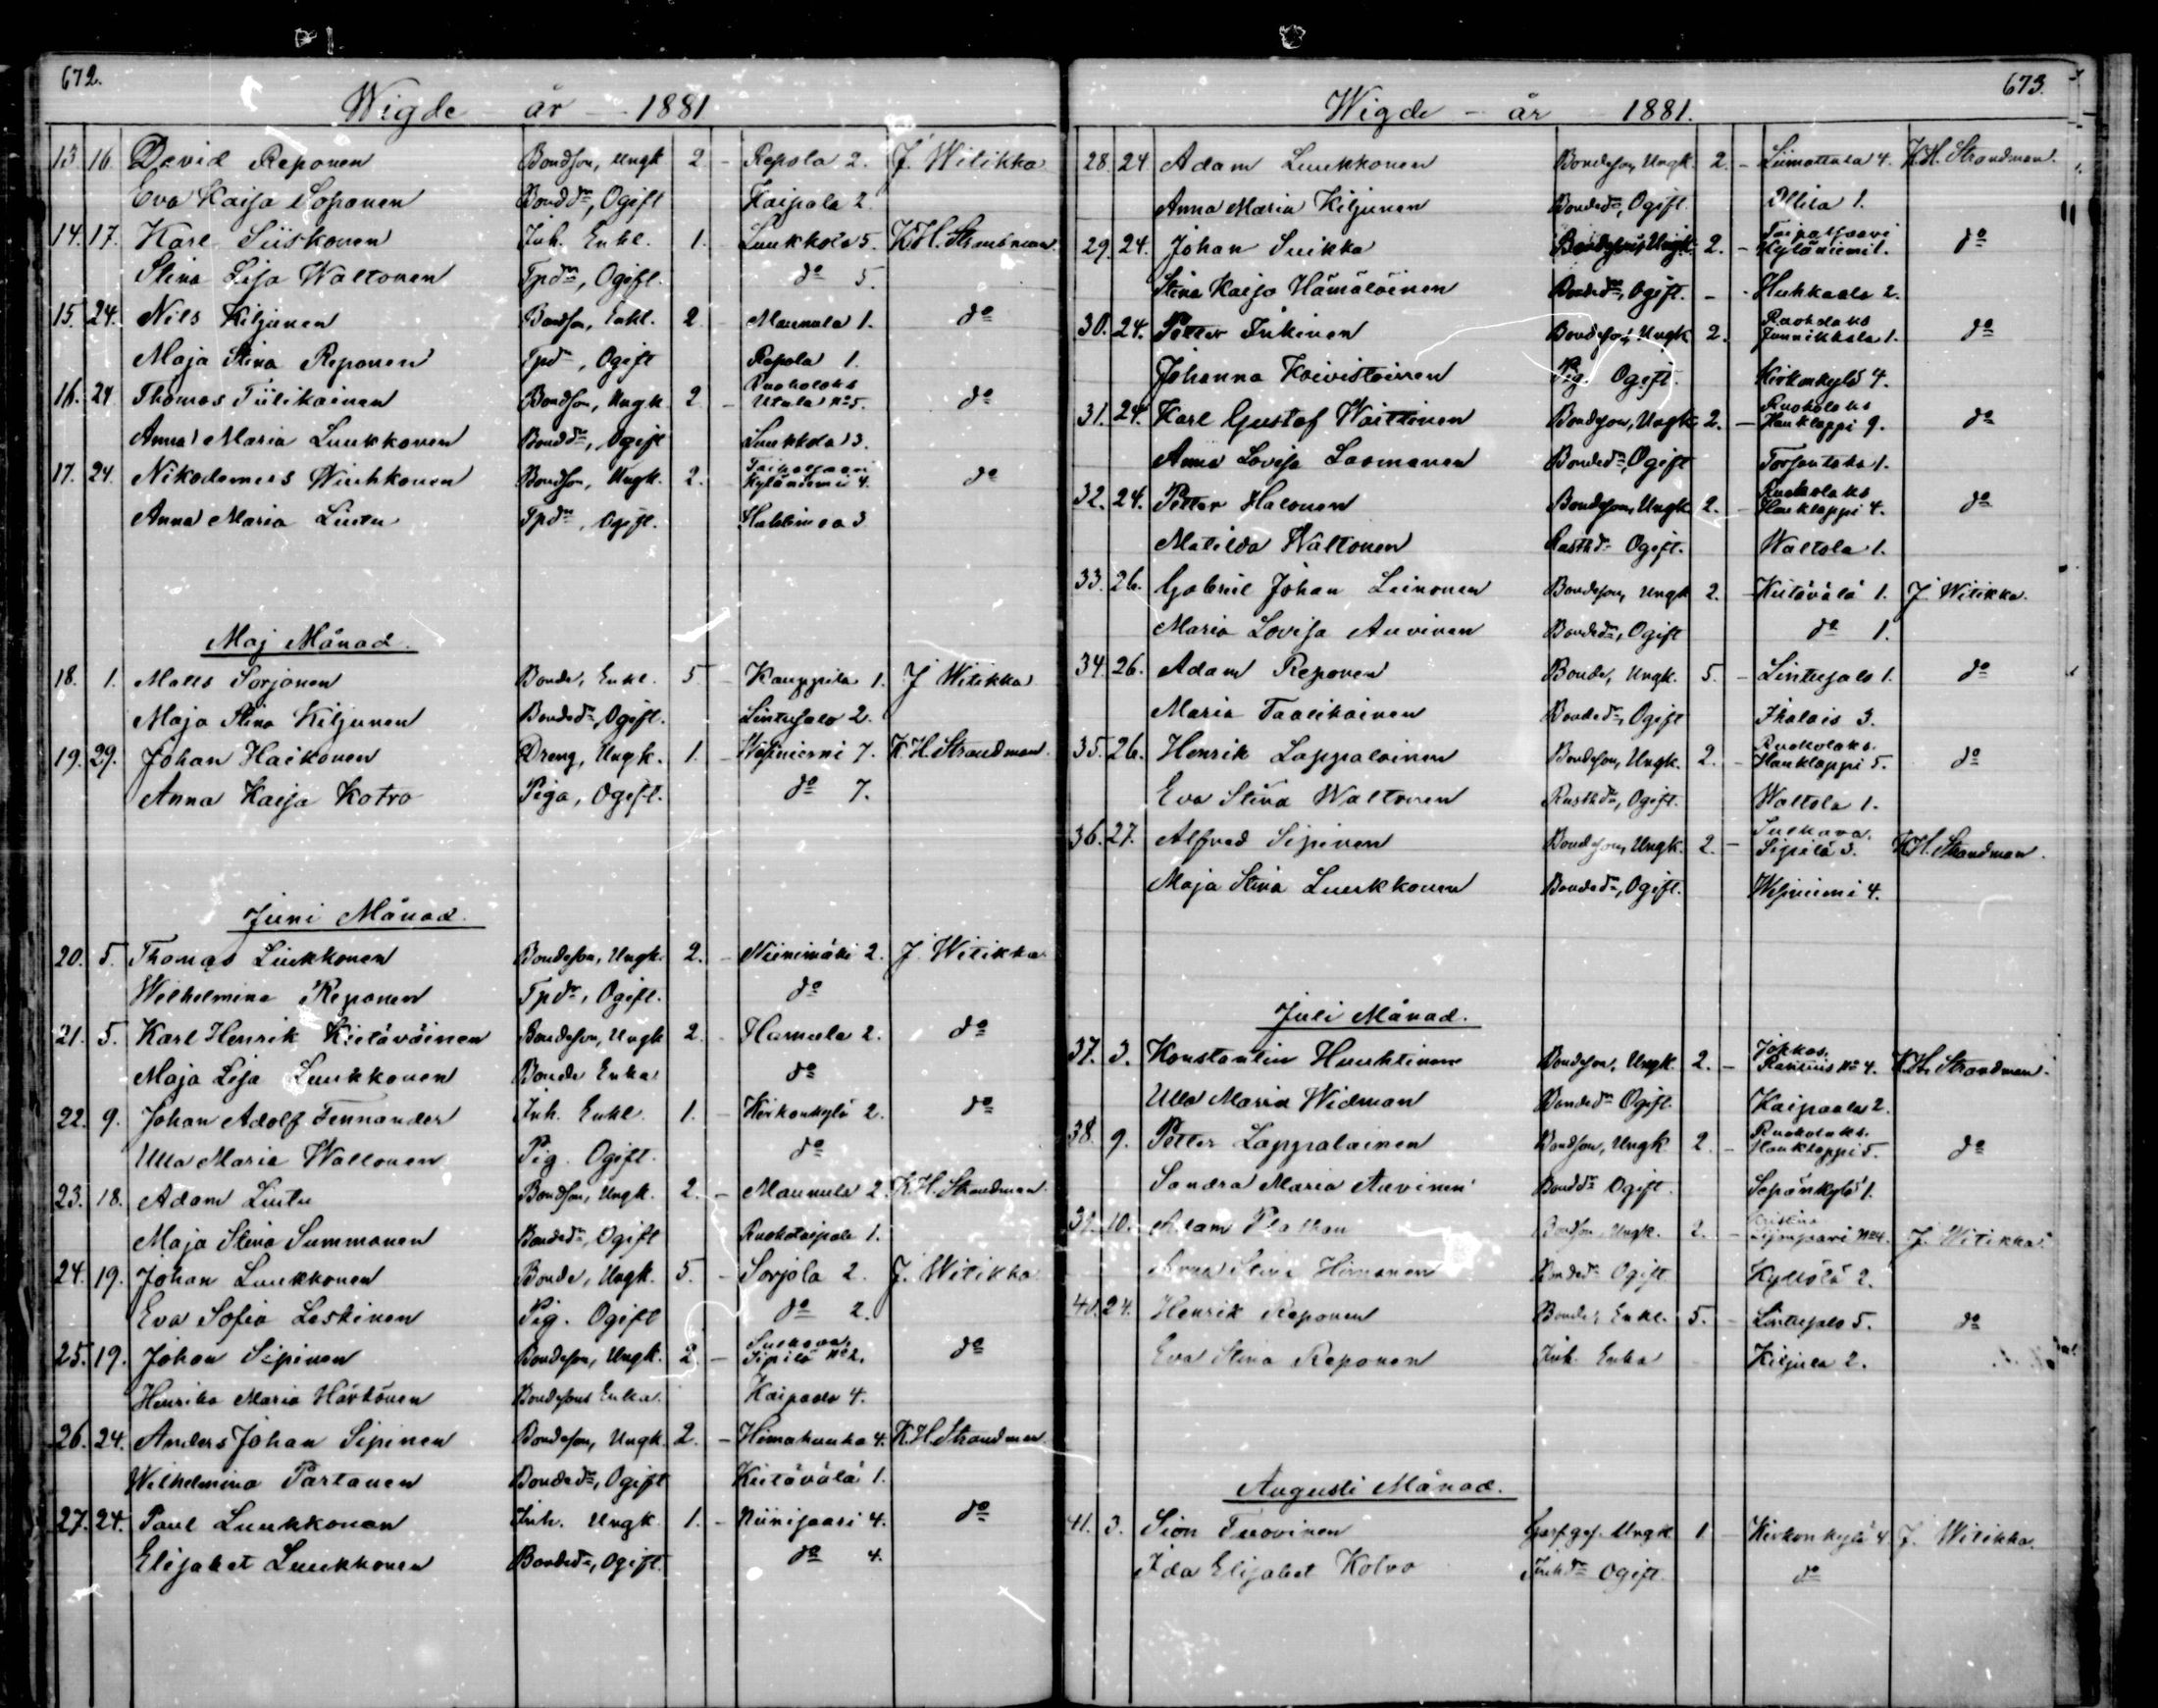 672.
Wigde år 1881
13 16 David Reponen Bondson, Ungk 2 - Repola 2. J. Witikka
Eva Kaisa Soponen Bondd:r, Ogift Kaipola 2
14. 17. Karl Siiskonen Inh. Enkl. 1. Luukkola 5. K.H. Strandman
Stina Lisa Waltonen Tpd:r, Ogift. d:o 5.
15. 24. Nils Kiljunen Bondson, Enkl. 2 - Maunula 1. d:o
Maja Stina Reponen Tpd:r, Ogift Repola 1.
16. 24 Thomas Tiilikainen Bondson, Ungk. 2 - Ruokolaks Utula No 5. d:o
Anna Maria Luukkonen Bondd:r, Ogift Luukkola 3.
17. 24. Nikodemus Wiuhkonen Bondson, Ungk. 2. Taipalsaari Kyläniemi 4. d:o
Anna Maria Lintu Tpd:r, Ogift. 3
Maj Månad.
18. 1. Matts Sorjonen Bonde, Enkl. 5 - Kauppila 1. J Witikka
Maja Stina Kiljunen Bonded:r, Ogift. Lintusalo 2.
19. 29. Johan Haikonen Dreng, Ungk. 1. - Wesiniemi 7. K.H. Strandman
Anna Kaisa Kotro Piga, Ogift. d:o 7.
Juni Månad.
20. 5. Thomas Liukkonen Bondeson, Ungk. 2. - Niinimäki 2. J. Witikka
Wilhelmina Reponen Tpd:r, Ogift. d:o
21. 5. Karl Henrik Kietäväinen Bondeson, Ungk 2. Hamula 2. d:o
Maja Lisa Luukkonen Bonde Enka d:o
22. 9. Johan Adolf Tennander Inh. Enkl. 1. - Kirkonkylä 2. d:o
Ulla Maria Waltonen Pig. Ogift. d:o
23. 18. Adam Lintu Bondson, Ungk. 2. - Maunula 2 K.H. Strandman
Maja Stina Summanen Bonded:r, Ogift Ruokotaipale 1.
24. 19. Johan Luukkonen Bonde, Ungk. 5. - Sorjola 2. J. Witikka
Eva Sofia Leskinen Pig. Ogift d:o 2.
25. 19. Johan Sipinen Bondeson, Ungk. 2 - Sulkava Sipilä No 2. d:o
Henrika Maria Härkönen Bondesons Enka. Kaipaala 4.
26. 24. Anders Johan Sipinen Bondeson, Ungk 2. - Himahanka 4. K.H. Strandman
Wilhelmina Partanen Bonded:r, Ogift Kietävälä 1.
27. 24. Paul Luukkonen Inh. Ungk 1. - Niinisaari 4. d:o
Elisabet Luukkonen Bonded:r, Ogift. d:o 4.
673.
Wigde - år 1881.
28. 24 Adam Luukkonen Bondeson, Ungk. 2. - Liimattala 4. K.H. Strandman.
Anna Maria Kiljunen Bonded:r, Ogift. 1.
29. 24. Johan Suikka Bondeson, Ungk. 2. - Taipalsaari Kyläniemi 1. d:o
Stina Kaisa Hämäläinen Bonded:r, Ogift. - Huhkaala 2.
30. 24. Petter Inkinen Bondeson, Ungk 2. Ruokolaks Junnikkala 1. d:o
Johanna Koivistoinen Pig. Ogift. Kirkonkylä 4.
31. 24. Karl Gustaf Waittinen Bondeson, Ungk 2. - Ruokolaks Hauklappi 9. d:o
Anna Lovisa Laamanen Bonded:r, Ogift Torsantaka 1.
32. 24. Petter Halonen Bondeson, Ungk 2. Ruokolaks Hauklappi 4. d:o
Matilda Waltonen Rusthd:r Ogift. Waltola 1.
33. 26. Gabriel Johan Leinonen Bondeson, Ungk 2. - Kietävälä 1. J Witikka.
Maria Lovisa Auvinen Bonded:r, Ogift d:o 1.
34. 26. Adam Reponen Bonde, Ungk. 5. - Lintusalo 1. d:o
Maria Taalikainen Bonded:r, Ogift 3.
35. 26. Henrik Lappalainen Bondeson, Ungk. 2. - Ruokolaks. Hauklappi 5. d:o
Eva Stina Waltonen Rusthd:r, Ogift. Waltola 1.
36. 27. Alfred Sipinen Bondeson, Ungk. 2. - Sulkava. Sipilä 3. K.H. Strandman.
Maja Stina Luukkonen Bonded:r, Ogift. Wesiniemi 4.
Juli Månad.
37. 3. Konstantin Huuhtinen Bondeson, Ungk. 2. - Jokkas. No 4. K.H. Strandman.
Ulla Maria Widman Bonded:r Ogift. Kaipaala 2.
38. 9. Petter Lappalainen Bondson, Ungk 2 - Ruokolaks. Hauklappi 5. d:o
Sandra Maria Auvinen Bondd:r Ogift. Sopänkylä 1.
39. 10. Adam Bondson, Ungk. 2. - Kristina No 4. J. Witikka
Anna Stina Himanen Bonded:r Ogift Kyllölä 2.
40. 24. Henrik Reponen Bonde, Enkl. 5. - Lintusalo 5. d:o
Eva Stina Reponen Inh. Enka Kiljula 2.
Augusti Månad.
41. 3. Sion Tuovinen Ungk 1 - Kirkonkylä 4 J. Witikka.
Ida Elisabet Kotro Inhd:r Ogift. d:o